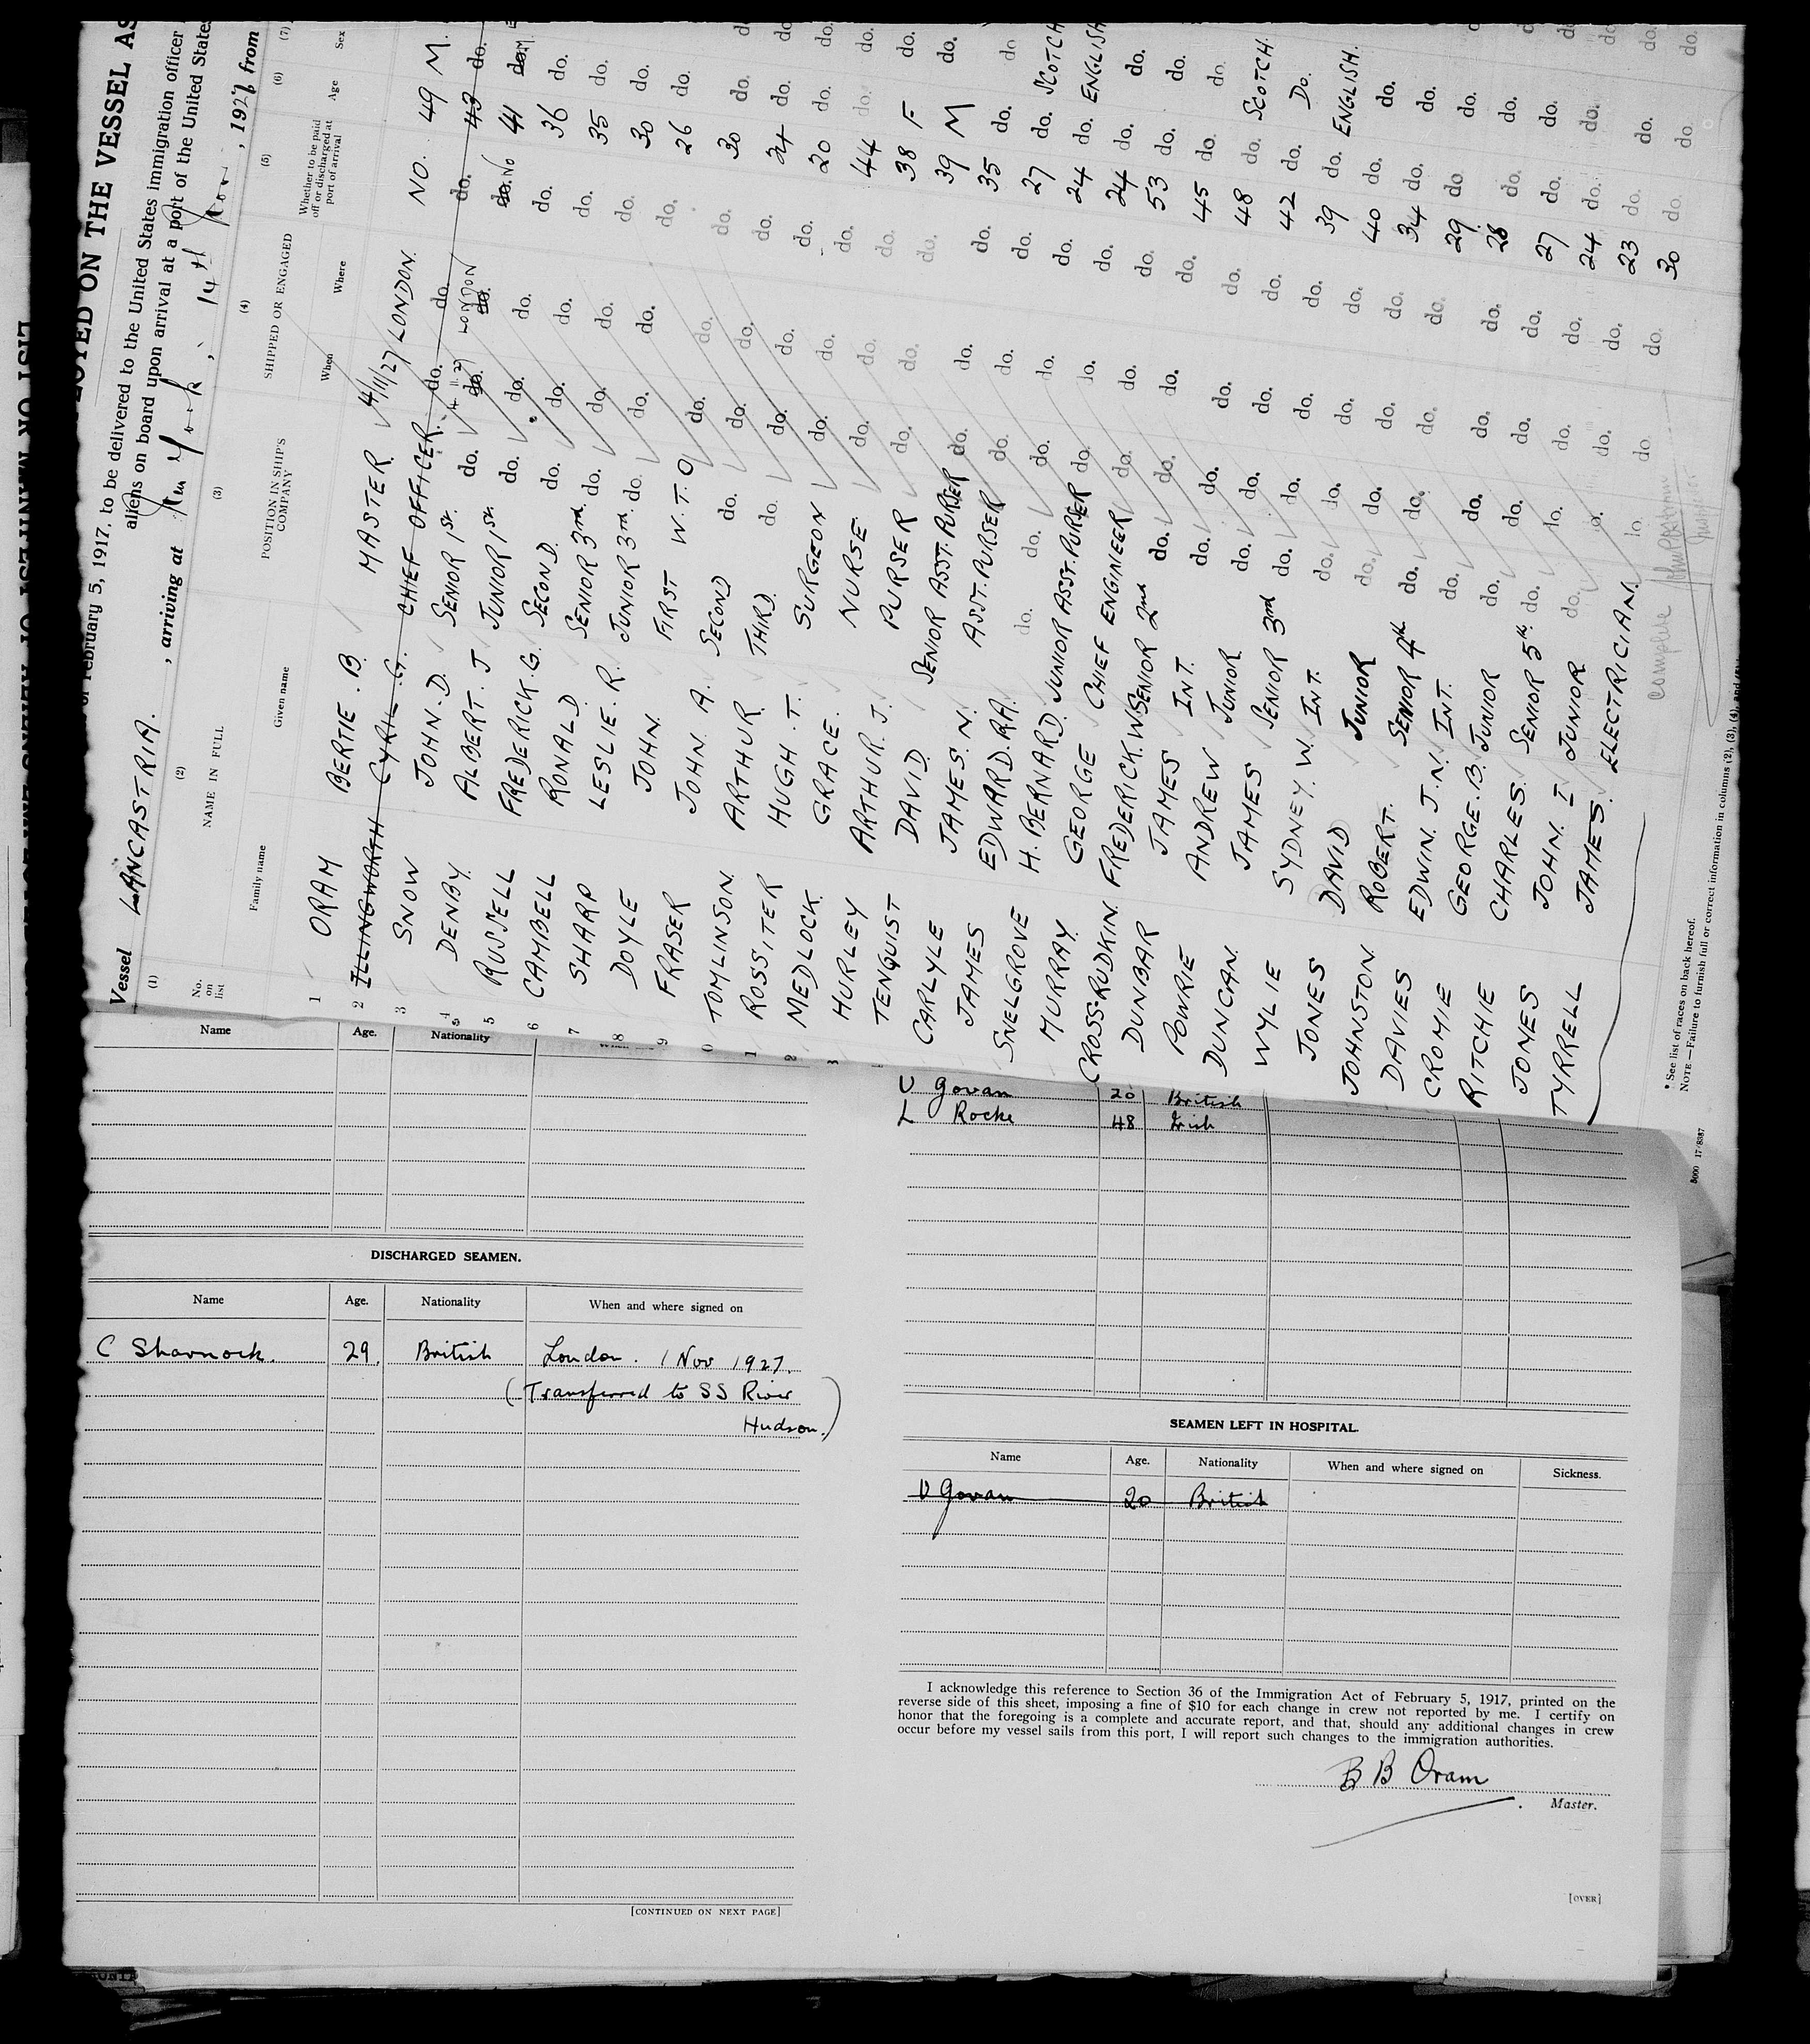 OYED ON THE VESSEL AS
of February 5, 1917, to be delivered to the United States immigration officer
aliens on board upon arrival at a port of the United States
Vessel LANCASTRIA. , arriving at New York, 14th Nov , 1927, from
(1) (2) (3) (4) (5) (6) (7)
No. on list NAME IN FULL POSITION IN SHIP'S COMPANY SHIPPED OR ENGAGED Whether to be paid off or discharged at port of arrival Age Sex
Family name Given name When Where
1 ORAM BERTIE. B. MASTER 4/11/27 LONDON. NO. 49 M.
2 ILLINGWORTH CYRIL. G. CHIEF OFFICER. do. do. do. 43 do.
3 SNOW JOHN. D. SENIOR 1st. do. 4 11 27 do. LONDON do. do. No 41 do. M.
4 DENBY. ALBERT. J JUNIOR 1st. do. do. do. do. 36 do.
5 RUSSELL FREDERICK. G. SECOND. do. do. do. do. 35 do.
6 CAMBELL RONALD. SENIOR 3rd. do. do. do. do. 30 do.
7 SHARP LESLIE. R. JUNIOR 3rd. do. do. do. do. 26 do.
8 DOYLE JOHN. FIRST W. T. O do. do. do. 30 do.
9 FRASER JOHN. A. SECOND do. do. do. do. 24 do.
0 TOMLINSON. ARTHUR. THIRD. do. do. do. do. 20 do.
1 ROSSITER HUGH. T. SURGEON do. do. do. 44 do.
2 MEDLOCK. GRACE. NURSE. do. do. do. 38 F
3 HURLEY ARTHUR. J. PURSER do. do. do. 39 M
TENQUIST DAVID. SENIOR ASST. PURSER do. do. do. 35 do.
CARLYLE JAMES. N. ASST. PURSER do. do. do. 27 do. SCOTCH
JAMES EDWARD. RA. do. do. do. do. do. 24 do. ENGLISH
SNELGROVE H. BERNARD. JUNIOR ASST. PURSER do. do. do. 24 do. do.
MURRAY. GEORGE CHIEF ENGINEER do. do. do. 53 do. do.
CROSS-RUDKIN. FREDERICK. W. SENIOR 2nd do. do. do. do. 45 do. do.
DUNBAR JAMES INT. do. do. do. do. 48 do. SCOTCH.
POWRIE ANDREW JUNIOR do. do. do. do. 42 do. Do.
DUNCAN. JAMES SENIOR 3rd do. do. do. do. 39 do. ENGLISH.
WYLIE SYDNEY. W. INT. do. do. do. do. 40 do. do.
JONES DAVID JUNIOR do. do. do. do. 34 do. do.
JOHNSTON. ROBERT. SENIOR 4th do. do. do. do. 29 do do.
DAVIES EDWIN. J. N. INT. do. do. do. do. 28 do. do.
CROMIE GEORGE. B. JUNIOR do. do. do. do. 27 do. do.
RITCHIE CHARLES. SENIOR 5th. do. do. do. do. 24 do. do.
JONES JOHN. I JUNIOR do. do. do. do. 23 do. do.
TYRRELL JAMES. ELECTRICIAN. do. do. do. 30 do. do.
complete
* See list of races on back hereof.
NOTE.—Failure to furnish full or correct information in columns (2), (3), (4), and (5)
5000 17/8387
Name Age. Nationality
V Govan 20 British
L Rocke 48 Irish
DISCHARGED SEAMEN.
Name Age. Nationality When and where signed on
C Sharnock. 29. British London. 1 Nov 1927.
(Transferred to SS River
Hudson.)
[CONTINUED ON NEXT PAGE]
SEAMEN LEFT IN HOSPITAL.
Name Age. Nationality When and where signed on Sickness.
V Govan 20 British
I acknowledge this reference to Section 36 of the Immigration Act of February 5, 1917, printed on the
reverse side of this sheet, imposing a fine of $10 for each change in crew not reported by me. I certify on
honor that the foregoing is a complete and accurate report, and that, should any additional changes in crew
occur before my vessel sails from this port, I will report such changes to the immigration authorities.
B B Oram
Master.
[OVER]